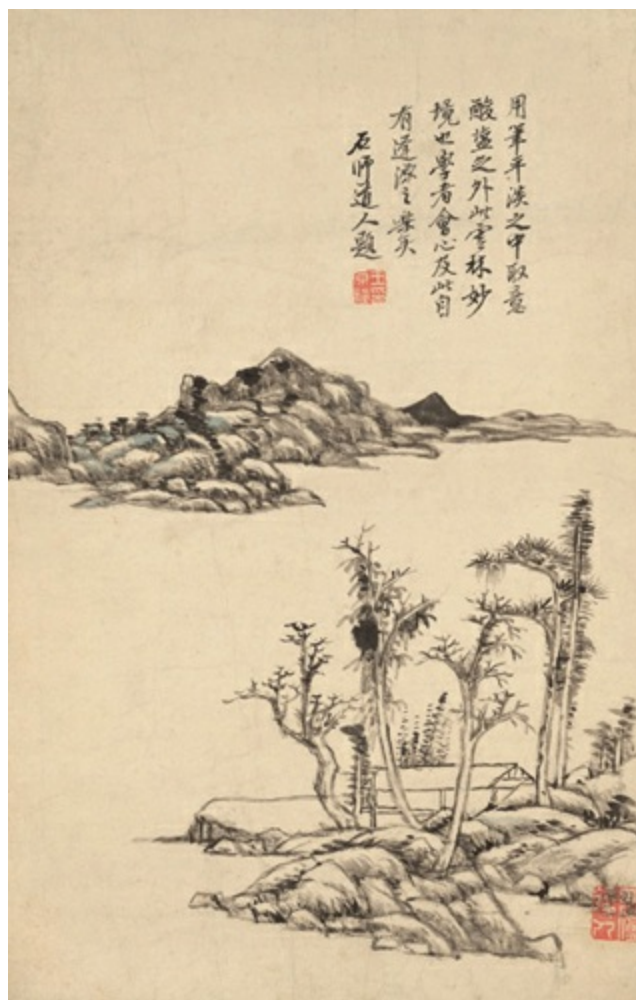 用筆平淡之中取意
酸鹽之外此雲林妙
境也學者會心及此自
有逢源之樂矣
石師道人題